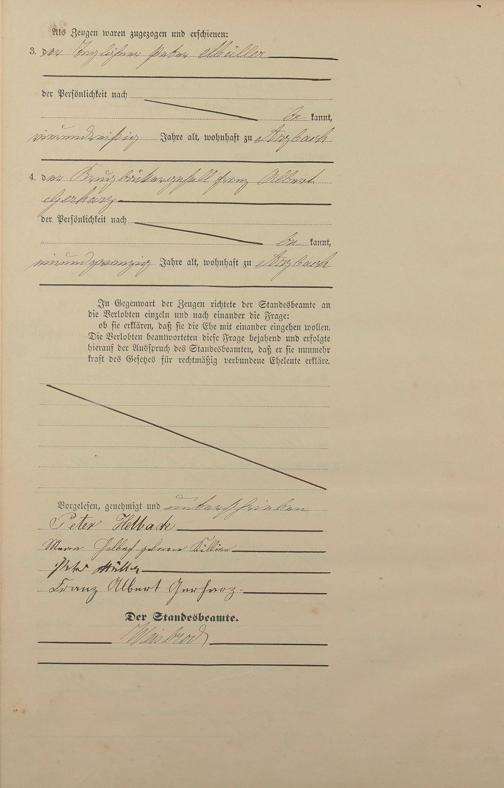 Als Zeugen waren zugezogen und erschienen:
3. der Taglöhner Peter Müller
der Persönlichkeit nach
be kannt,
vierunddreißig Jahre alt, wohnhaft zu Arzbach
4. der Krugbäckergesell Franz Albert
Gerharz
der Persönlichkeit nach
be kannt,
neunundzwanzig Jahre alt, wohnhaft zu Arzbach
In Gegenwart der Zeugen richtete der Standesbeamte an
die Verlobten einzeln und nach einander die Frage:
ob sie erklären, daß sie die Ehe mit einander eingehen wollen.
Die Verlobten beantworteten diese Frage bejahend und erfolgte
hierauf der Ausspruch des Standesbeamten, daß er sie nunmehr
kraft des Gesetzes für rechtmäßig verbundene Eheleute erkläre.
Vorgelesen, genehmigt und unterschrieben
Peter Helbach
Helbach geborene
Peter Müller
Franz Albert Gerharz
Der Standesbeamte.
Weisbrod